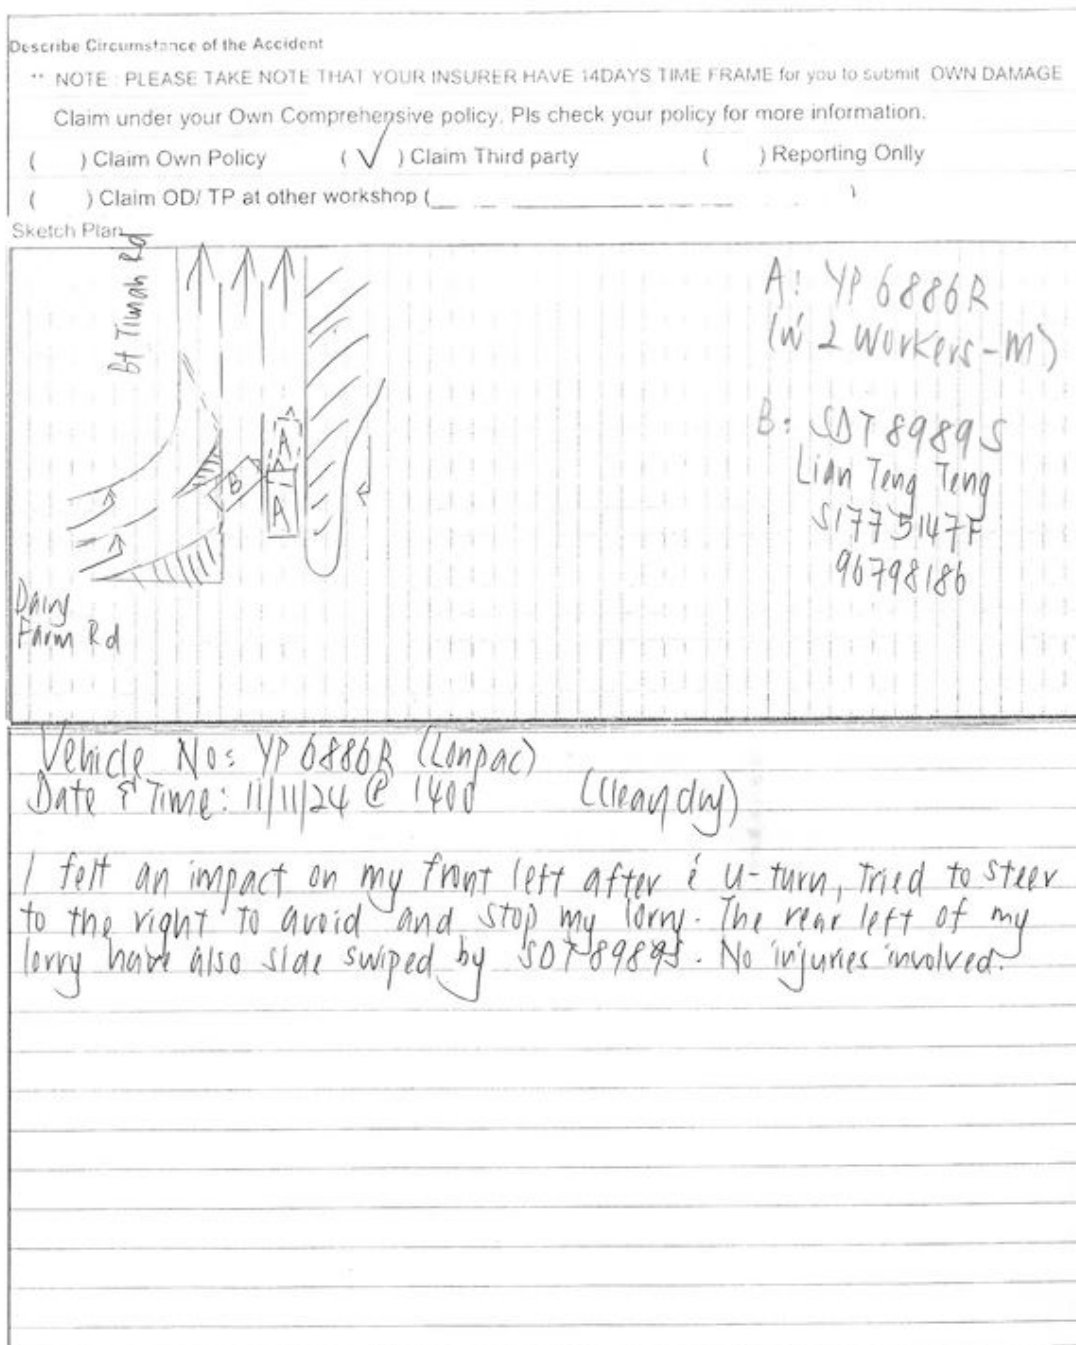 Describe Circumstance of the Accident
** NOTE : PLEASE TAKE NOTE THAT YOUR INSURER HAVE 14DAYS TIME FRAME for you to submit OWN DAMAGE
Claim under your Own Comprehensive policy. Pls check your policy for more information.
( ) Claim Own Policy ( √ ) Claim Third party ( ) Reporting Onlly
( ) Claim OD/ TP at other workshop ( )
Sketch Plan
Bt Timah Rd
A
B
A
Dairy
Farm Rd
A: YP 6886R
(w 2 workers-m)
B: SDT8989S
Lian Teng Teng
S1775147F
96798186
Vehicle No: YP 6886R (Lonpac)
Date & Time: 11/11/24 @ 1400 (Clear/dry)
I felt an impact on my front left after e u-turn, tried to steer
to the right to avoid and stop my lorry. The rear left of my
lorry have also side swiped by SDT8989S. No injuries involved.